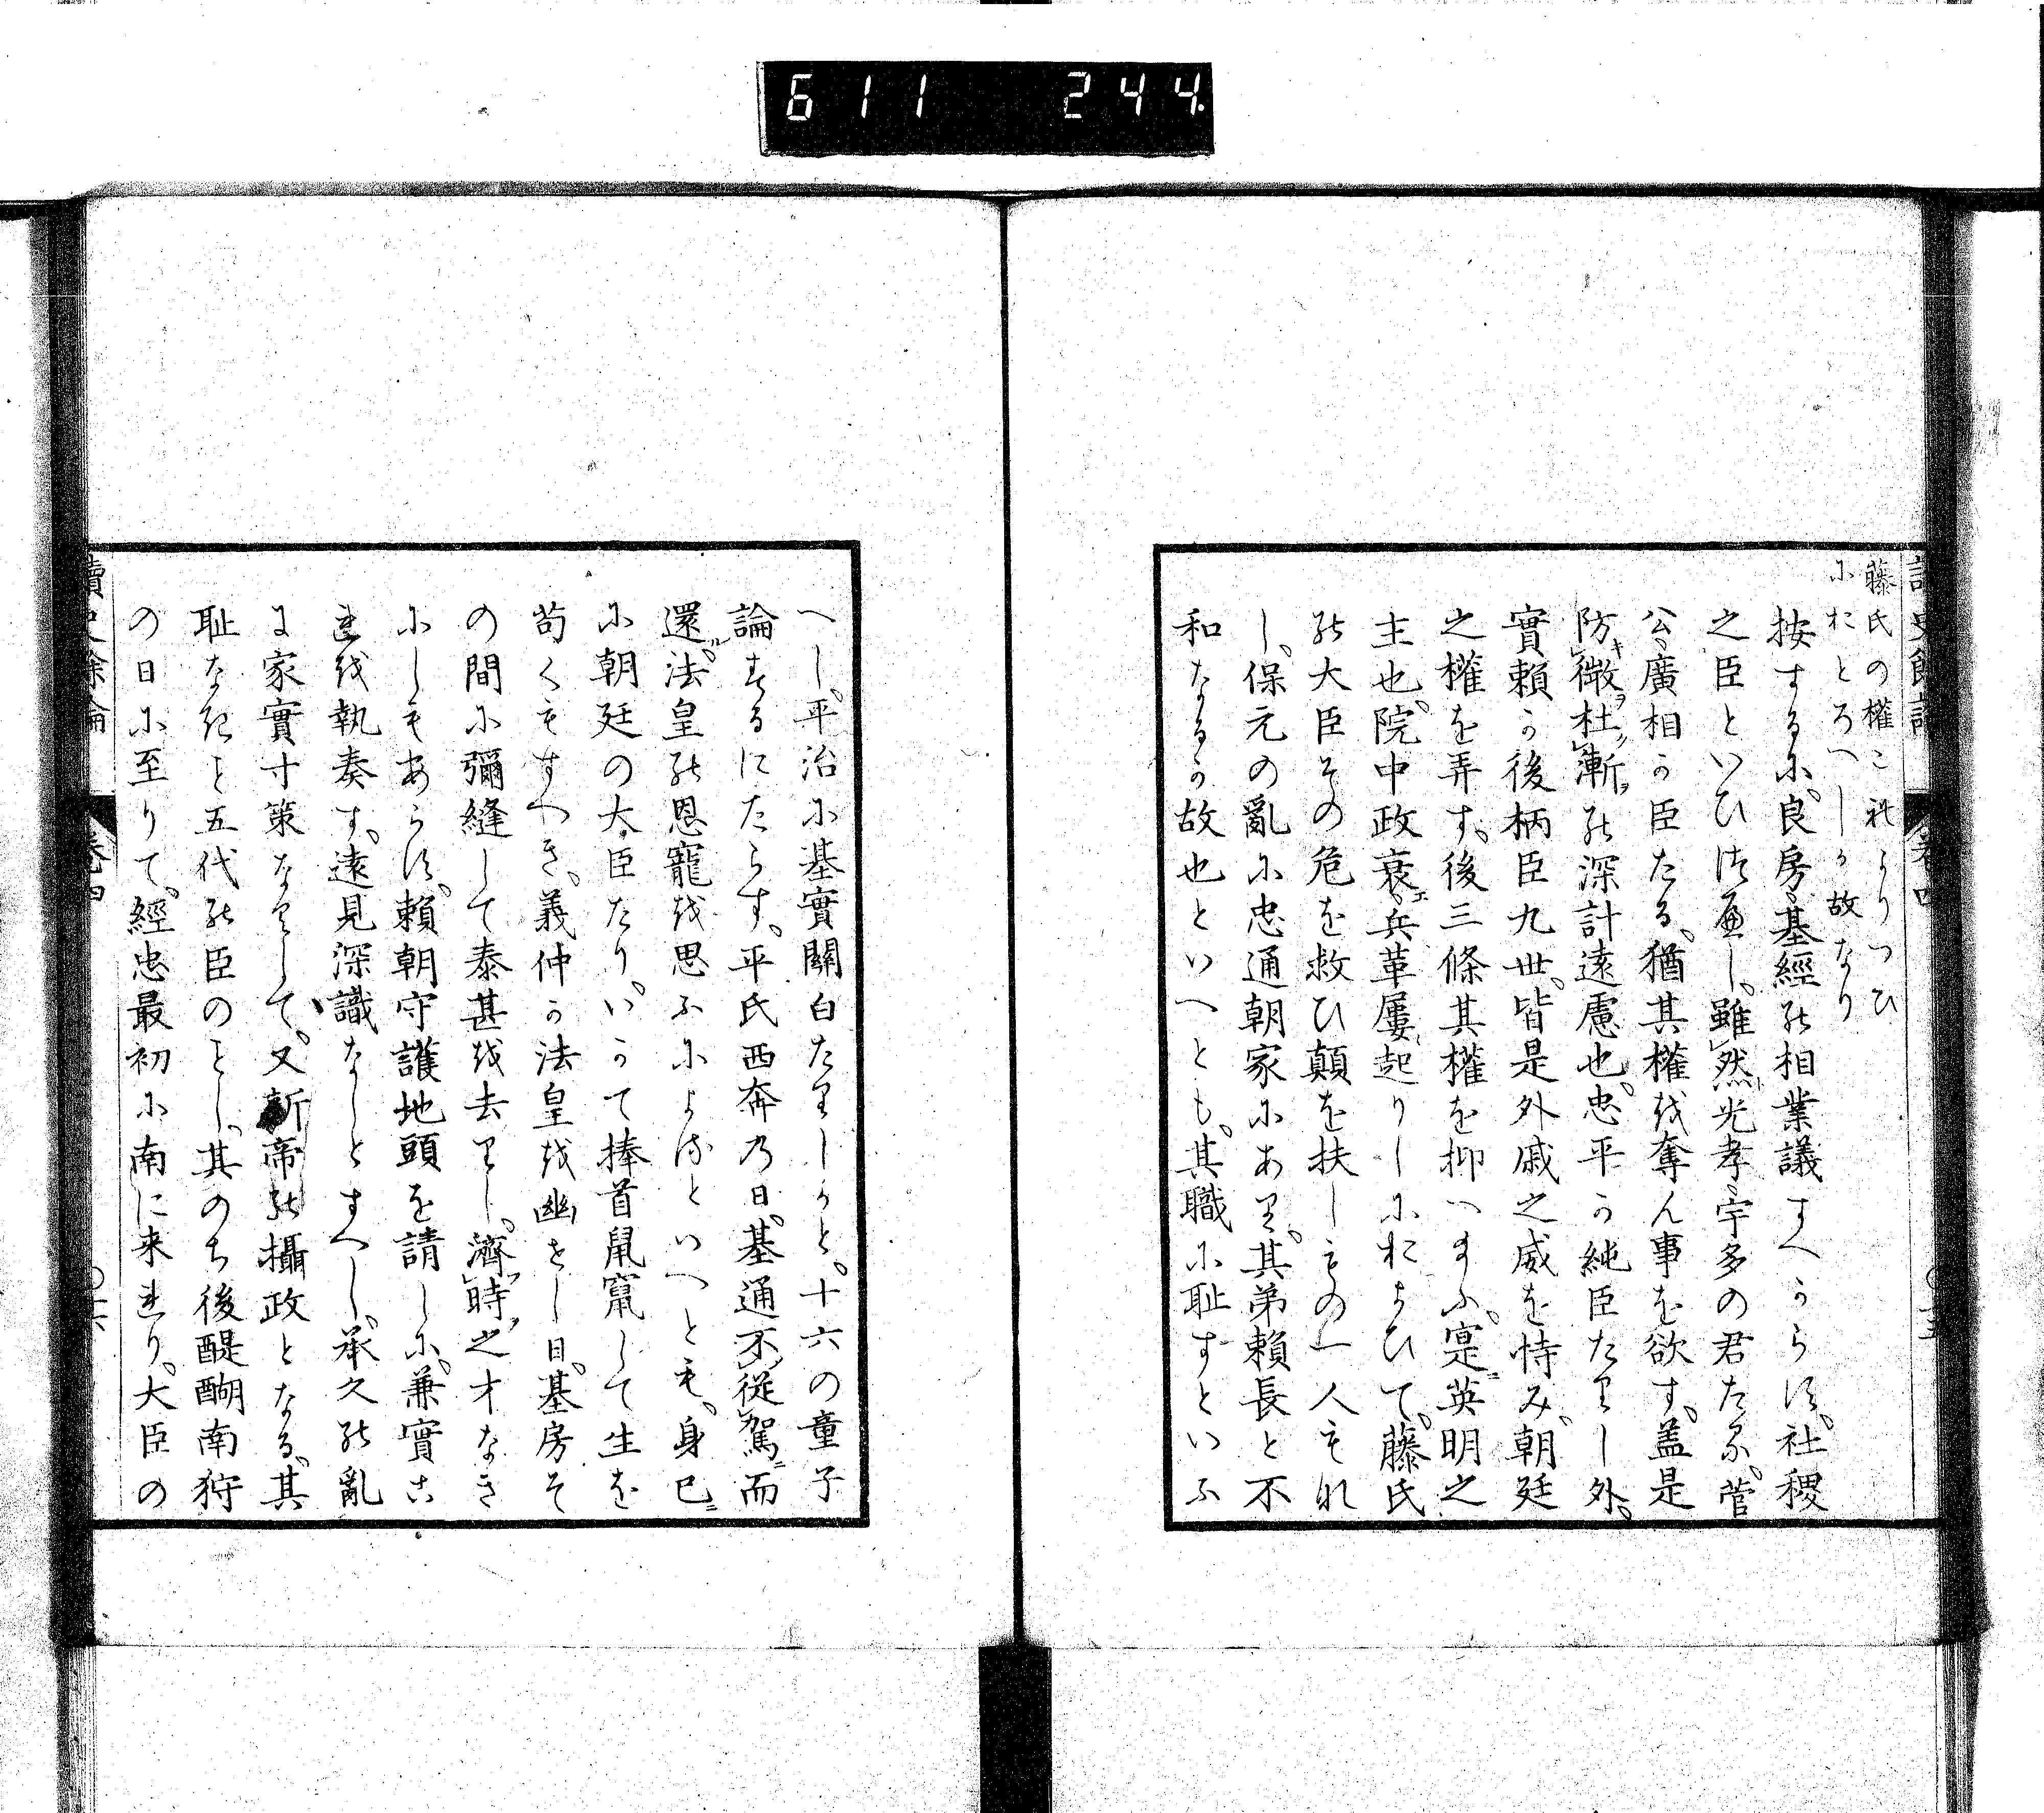 611 244
藤氏の權これよりつひ
におとろへしか故なり
按するに。良房。基經の相業議すへからす。社稷
之臣といひつへし。雖然光孝。宇多の君たる。菅
公。廣相か臣たる。猶其權を奪ん事を欲す。盖是
防キ微ヲ杜ク漸ヲの深計遠慮也。忠平か純臣たりし外。
實賴か後柄臣九世。皆是外戚之威を恃み。朝廷
之權を弄す。後三條其權を抑へまふ。寔ニ英明之
主也。院中政衰エ兵革屢起りしにおよひて。藤氏
の大臣その危を救ひ顛を扶しもの一人もれ
し。保元の亂に忠通朝家にあり。其弟賴長と不
和なるか故也といへとも。其職に恥すといふ
へし。平治に基實關白たりしかと。十六の童子
論するにたらす。平氏西奔乃日。基通不從駕ニ而
還ル。法皇の恩寵を思ふによれといへとも。身已ニ
に朝廷の大臣たり。いかて捧首鼠竄して生を
苟くもすへき。義仲か法皇を幽せし日。基房そ
の間に彌縫して泰甚を去りし。濟時之才なき
にしもあらす。賴朝守護地頭を請しに。兼實こ
れを執奏す。遠見深識なしとすへし。承久の亂
に家實寸策なくして。又新帝の攝政となる。其
耻なきこと五代の臣のことし。其のち後醍醐南狩
の日に至りて。經忠最初に南に来れり。大臣の
讀史餘論 卷四